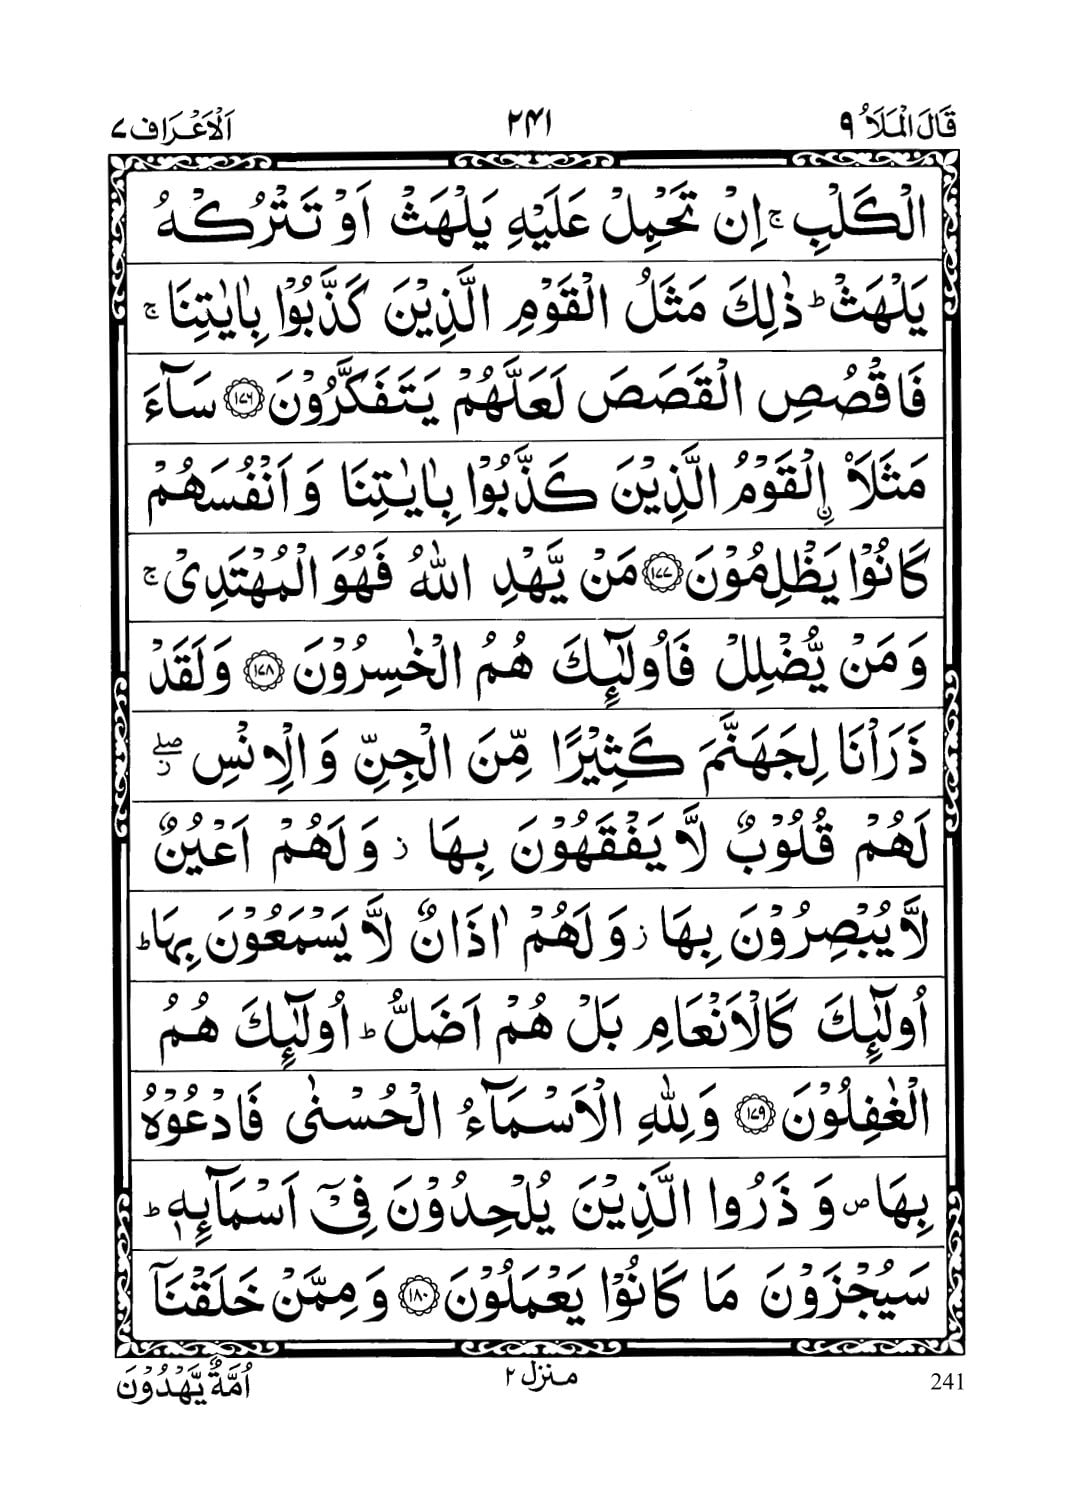 قَالَ الْمَلَاُ ۹ ۲۴۱ اَلْاَعْرَاف ۷
الْكَلْبِ ۚ اِنْ تَحْمِلْ عَلَيْهِ يَلْهَثْ اَوْ تَتْرُكْهُ
يَلْهَثْ ؕ ذٰلِكَ مَثَلُ الْقَوْمِ الَّذِيْنَ كَذَّبُوْا بِاٰيٰتِنَا ۚ
فَاقْصُصِ الْقَصَصَ لَعَلَّهُمْ يَتَفَكَّرُوْنَ ﴿۱۷۶﴾ سَآءَ
مَثَلَاۨ الْقَوْمُ الَّذِيْنَ كَذَّبُوْا بِاٰيٰتِنَا وَ اَنْفُسَهُمْ
كَانُوْا يَظْلِمُوْنَ ﴿۱۷۷﴾ مَنْ يَّهْدِ اللّٰهُ فَهُوَ الْمُهْتَدِيْ ۚ
وَ مَنْ يُّضْلِلْ فَاُولٰٓئِكَ هُمُ الْخٰسِرُوْنَ ﴿۱۷۸﴾ وَ لَقَدْ
ذَرَاْنَا لِجَهَنَّمَ كَثِيْرًا مِّنَ الْجِنِّ وَ الْاِنْسِ ۖز
لَهُمْ قُلُوْبٌ لَّا يَفْقَهُوْنَ بِهَا ز وَ لَهُمْ اَعْيُنٌ
لَّا يُبْصِرُوْنَ بِهَا ز وَ لَهُمْ اٰذَانٌ لَّا يَسْمَعُوْنَ بِهَا ؕ
اُولٰٓئِكَ كَالْاَنْعَامِ بَلْ هُمْ اَضَلُّ ؕ اُولٰٓئِكَ هُمُ
الْغٰفِلُوْنَ ﴿۱۷۹﴾ وَ لِلّٰهِ الْاَسْمَآءُ الْحُسْنٰى فَادْعُوْهُ
بِهَا ص وَ ذَرُوا الَّذِيْنَ يُلْحِدُوْنَ فِيْۤ اَسْمَآئِهٖ ؕ
سَيُجْزَوْنَ مَا كَانُوْا يَعْمَلُوْنَ ﴿۱۸۰﴾ وَ مِمَّنْ خَلَقْنَاۤ
241 منزل ۲ اُمَّةٌ يَّهْدُوْنَ